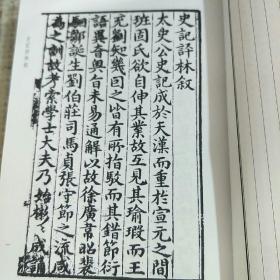 史記評林叙
太史公史記成於天漢而重於宣元之間
班固氏欲自伸其業故互見其瑜瑕而王
充劉知幾因之皆有所指駁而其錯節衍
語異音奥旨未易通解以故徐廣常昭裴
駰鄒誕生劉伯莊司馬貞張守節之流咸
為之訓故考索學士大夫乃始彬彬成